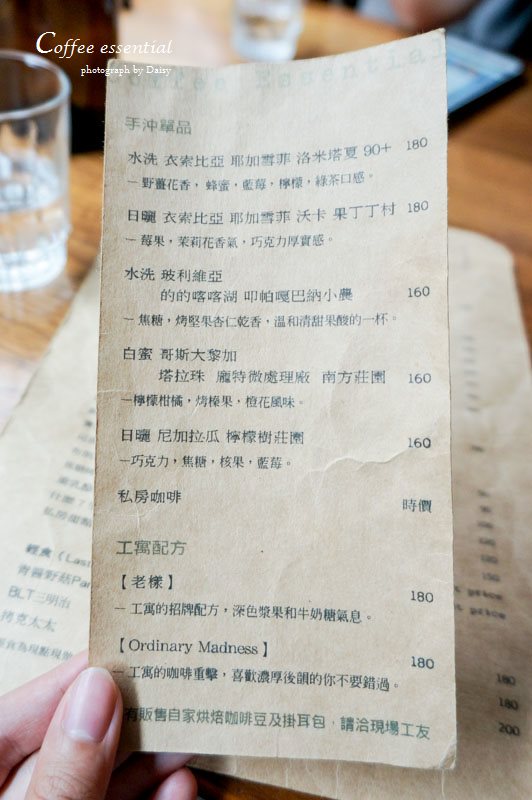 Coffee essential
photograph by Daisy
Coffee Essential
手沖單品
水洗 衣索比亞 耶加雪菲 洛米塔夏 90+ 180
— 野薑花香,蜂蜜,藍莓,檸檬,綠茶口感。
日曬 衣索比亞 耶加雪菲 沃卡 果丁丁村 180
— 莓果,茉莉花香氣,巧克力厚實感。
水洗 玻利維亞
的的喀喀湖 叩帕嘎巴納小農 160
— 焦糖,烤堅果杏仁乾香,溫和清甜果酸的一杯。
白蜜 哥斯大黎加
塔拉珠 龐特微處理廠 南方莊園 160
—檸檬柑橘,烤榛果,橙花風味。
日曬 尼加拉瓜 檸檬樹莊園 160
—巧克力,焦糖,核果,藍莓。
私房咖啡 時價
工寓配方
【老樣】 180
— 工寓的招牌配方,深色漿果和牛奶糖氣息。
【Ordinary Madness】 180
— 工寓的咖啡重擊,喜歡濃厚後韻的你不要錯過。
有販售自家烘焙咖啡豆及掛耳包,請洽現場工友
輕食
青醬野菇
BLT三明治
烤克太太
180
180
200